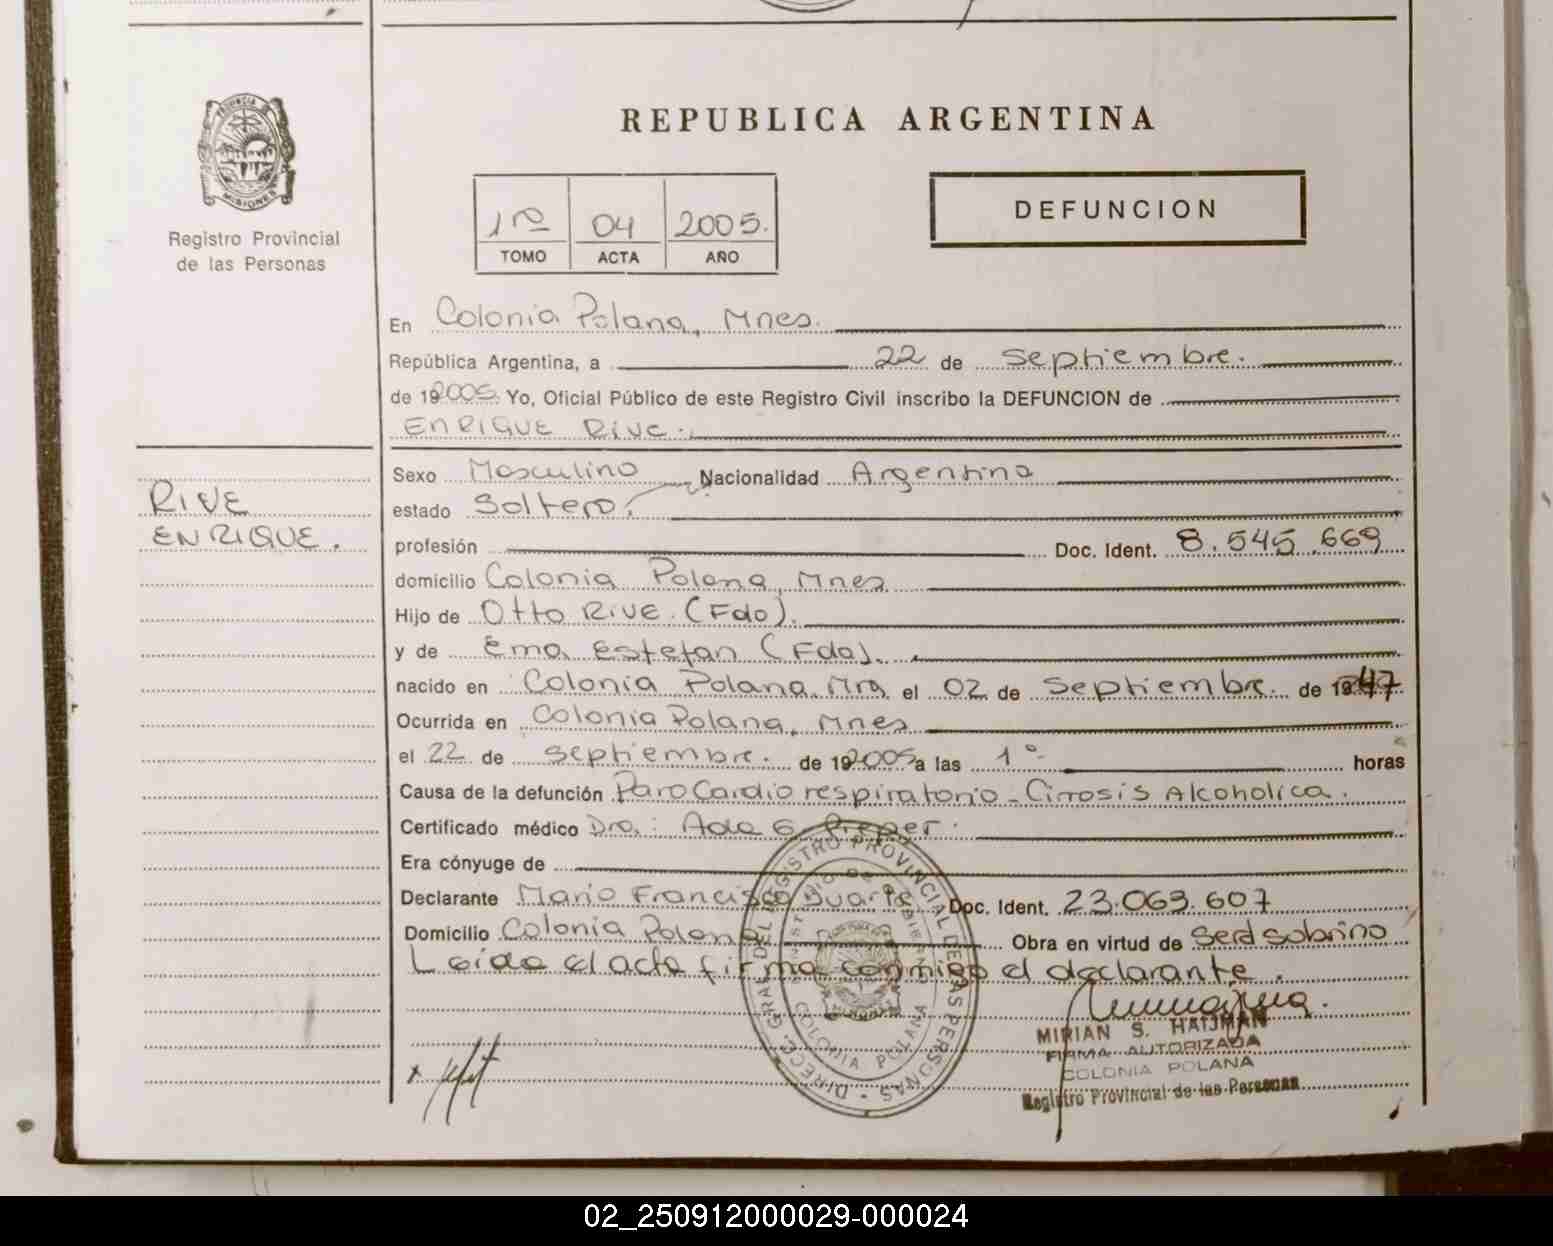 REPUBLICA ARGENTINA
PROVINCIA DE
MISIONES
Registro Provincial
de las Personas
DEFUNCION
1ro 04 2005.
TOMO ACTA AÑO
En Colonia Polana, Mnes.
República Argentina, a 22 de Septiembre.
de 192005. Yo, Oficial Público de este Registro Civil inscribo la DEFUNCION de
ENRIQUE RIVE.
RIVE
ENRIQUE.
Sexo Masculino Nacionalidad Argentina
estado Soltero.
profesión Doc. Ident. 8.545.669
domicilio Colonia Polana, Mnes
Hijo de Otto RIVE. (Fdo).
y de Ema Estefan (Fda).
nacido en Colonia Polana, el 02 de Septiembre. de 1947
Ocurrida en Colonia Polana, Mnes
el 22 de septiembre. de 192005 a las 1º horas
Causa de la defunción Paro Cardio respiratorio - Cirrosis Alcoholica.
Certificado médico Dra.: Ada G. Preper.
Era cónyuge de
Declarante Mario Francisco Duarte Doc. Ident. 23.063.607
Domicilio Colonia Polana Obra en virtud de Serd sobrino
Leída el acta firma conmigo el declarante.
DIRECC. GRAL. DEL REGISTRO PROVINCIAL DE LAS PERSONAS
MINISTERIO DE GOBIERNO
COLONIA POLANA
MIRIAN S. HAIJMAN
FIRMA AUTORIZADA
COLONIA POLANA
Registro Provincial de las Personas
02_250912000029-000024